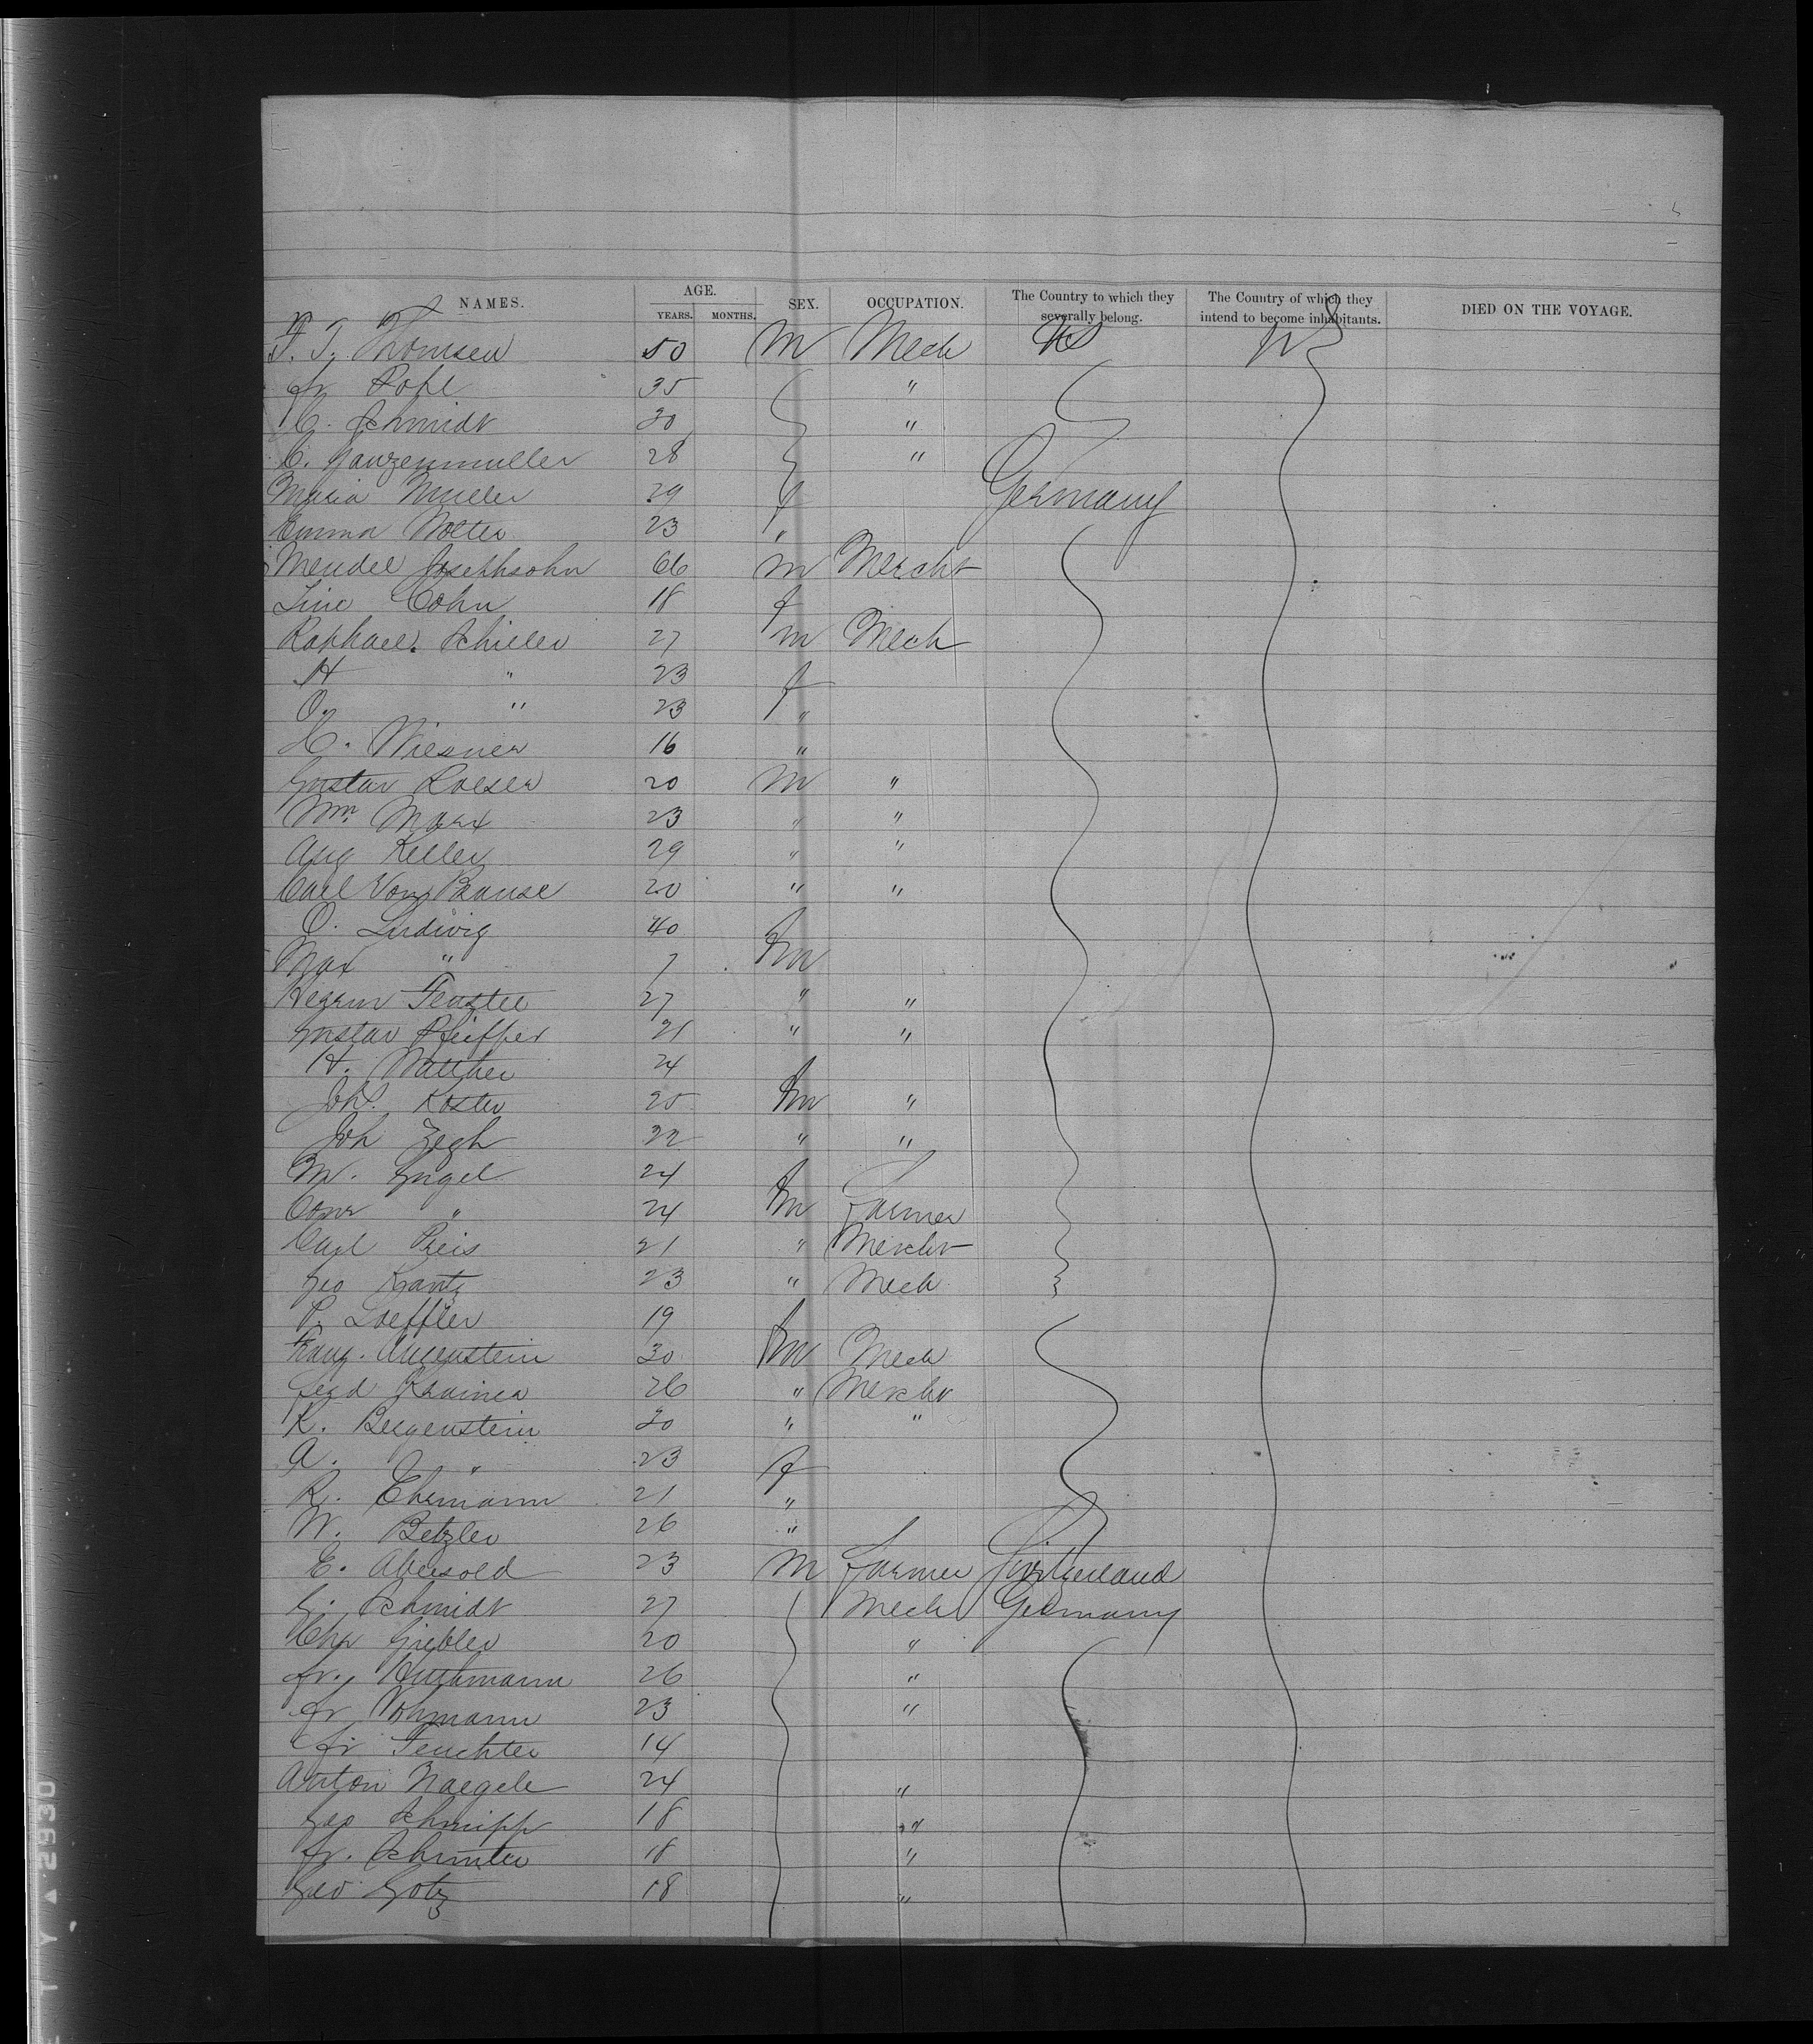 NAMES. AGE. SEX. OCCUPATION. The Country to which they severally belong. The Country of which they intend to become inhabitants. DIED ON THE VOYAGE.
YEARS. MONTHS.
F. T. Thomsen 50 M Mech US
Fr Pohl 35 "
C. Schmidt 30 "
C. Ganzenmuller 28 "
Maria Muller 29 f Germany
Emma Nolter 23 "
Mendel Josephsohn 66 M Mercht
Line Cohn 18 f
Raphael Schiller 27 m Mech
H " 23 f
O. " 23 "
C. Wiesner 16 "
Gustav Loeser 20 M "
Wm. Marx 23 " "
Aug Keller 29 " "
Carl Von Brause 20 " "
O. Ludwig 40 f
Max " 7 m
Herrm Fenstel 27 " "
Gustav Pfeiffer 21 " "
H. Walther 24 f
Joh. Koster 25 m "
Joh Zegh 22 " "
M. Engel 24 f
Conr " 24 m Farmer
Carl Preis 21 " Mercht
Geo Krantz 23 " Mech
P. Loeffler 19 f
Franz. Augenstein 30 m Mech
Ferd Krainer 26 " Mercht
K. Bergenstein 30 " "
A. " 23 f
R. Ehrmann 21 "
W. Betzler 26 "
E. Abersold 23 M Farmer Switzerland
G. Schmidt 27 Mech Germany
Chr Giebler 20 "
Fr. Huthmann 26 "
Fr Vohmann 23 "
Fr Feuchter 14
Anton Naegele 24 "
Geo Schnipp 18 "
Fr. Schmiter 18 "
Geo Gotz 18 "